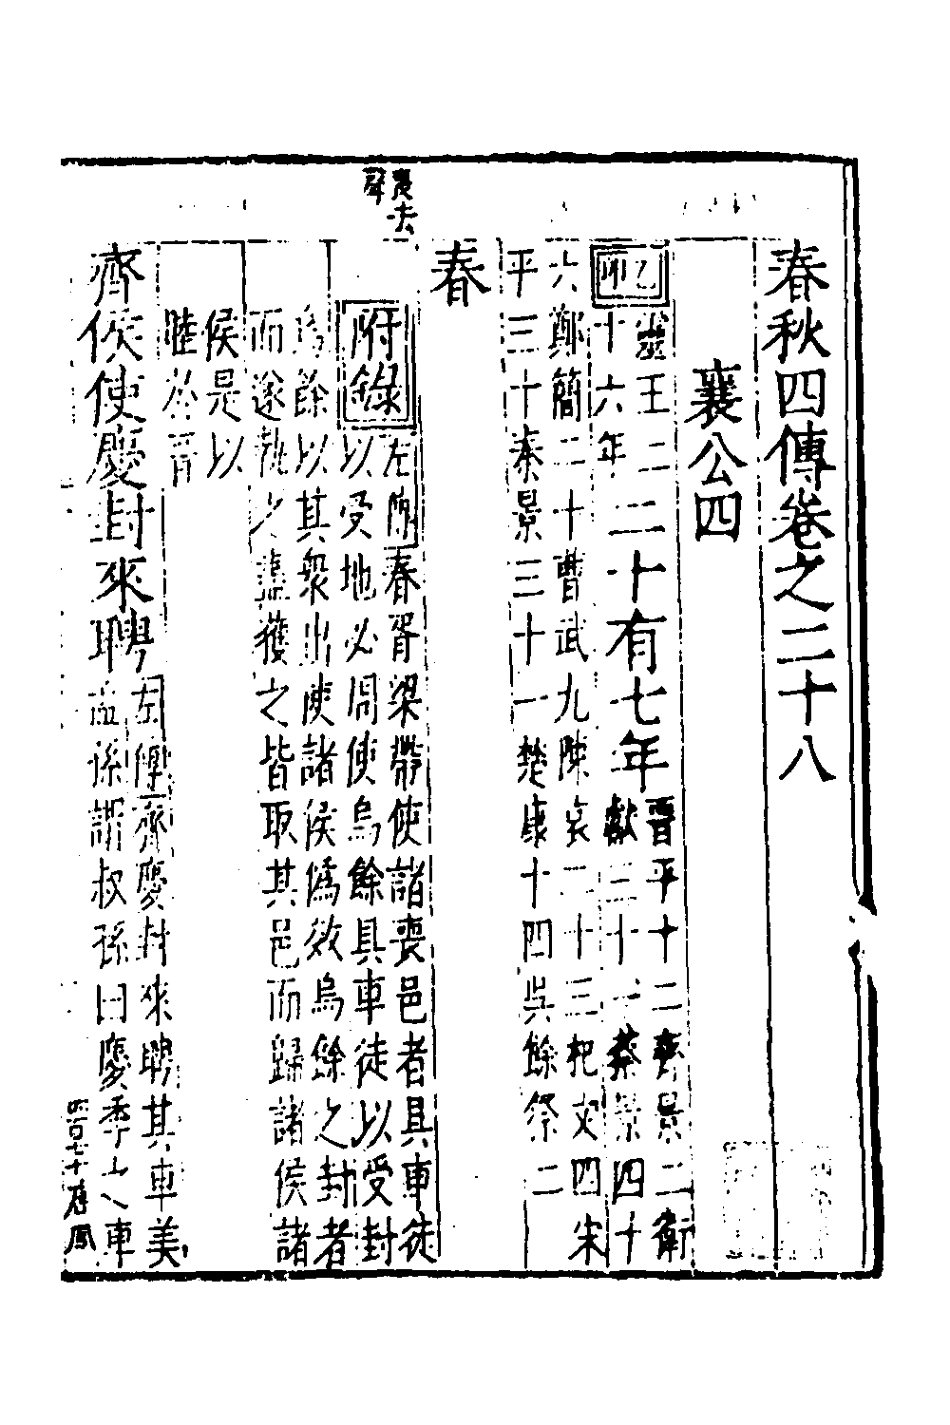 春秋四傳卷之二十八
襄公四
乙卯
靈王二
十六年
二十有七年
晉平十二齊景二衛
獻三十一蔡景四十
六鄭簡二十曹武九陳哀二十三杞文四宋
平三十秦景三十一楚康十四吳餘祭二
春
喪去
聲
附錄
左傳春胥梁帶使諸喪邑者具車徒
以受地必周使烏餘具車徒以受封
烏餘以其衆出使諸侯偽效烏餘之封者
而遂執之盡獲之皆取其邑而歸諸侯諸
侯是以
睦於晉
齊侯使慶封來聘
左傳齊慶封來聘其車美
孟孫謂叔孫曰慶季之車